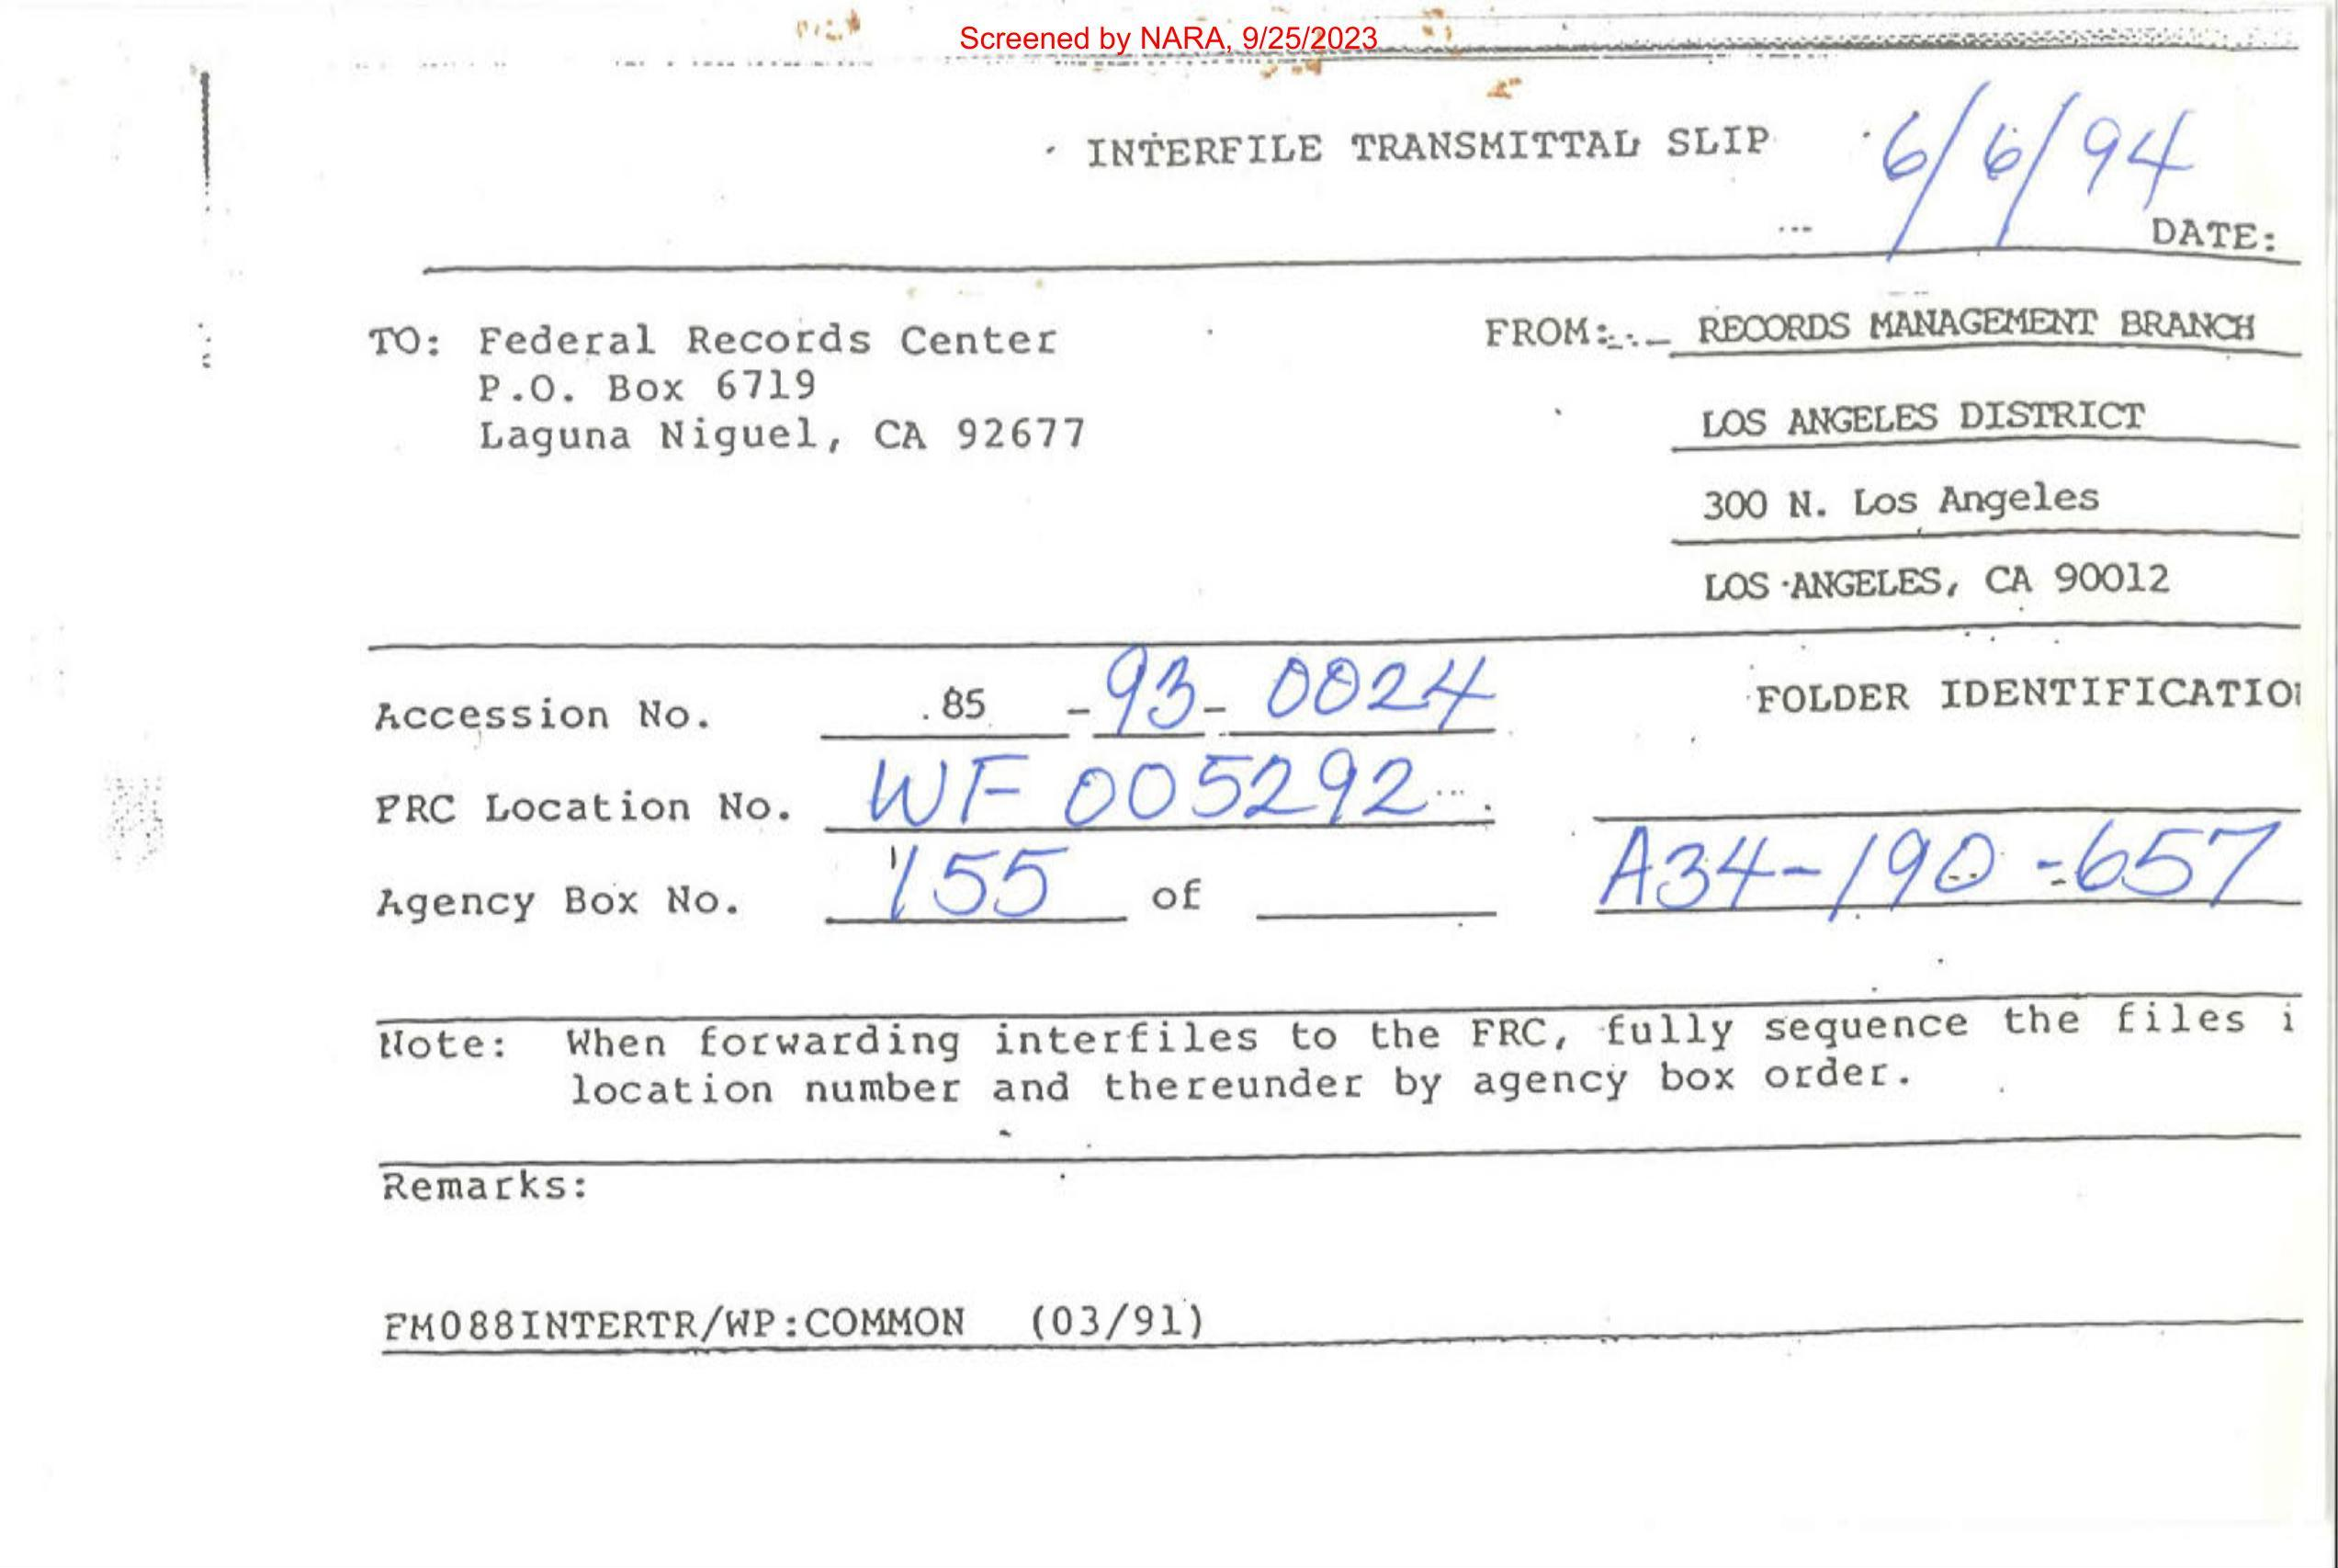 Screened by NARA, 9/25/2023
INTERFILE TRANSMITTAL SLIP
6/6/94
DATE:
TO: Federal Records Center
P.O. Box 6719
Laguna Niguel, CA 92677
FROM: RECORDS MANAGEMENT BRANCH
LOS ANGELES DISTRICT
300 N. Los Angeles
LOS ANGELES, CA 90012
Accession No. 85 - 93 - 0024
FOLDER IDENTIFICATIO
FRC Location No. WF 005292
Agency Box No. 155 of
A34-190-657
Note: When forwarding interfiles to the FRC, fully sequence the files i
location number and thereunder by agency box order.
Remarks:
FM088INTERTR/WP:COMMON (03/91)